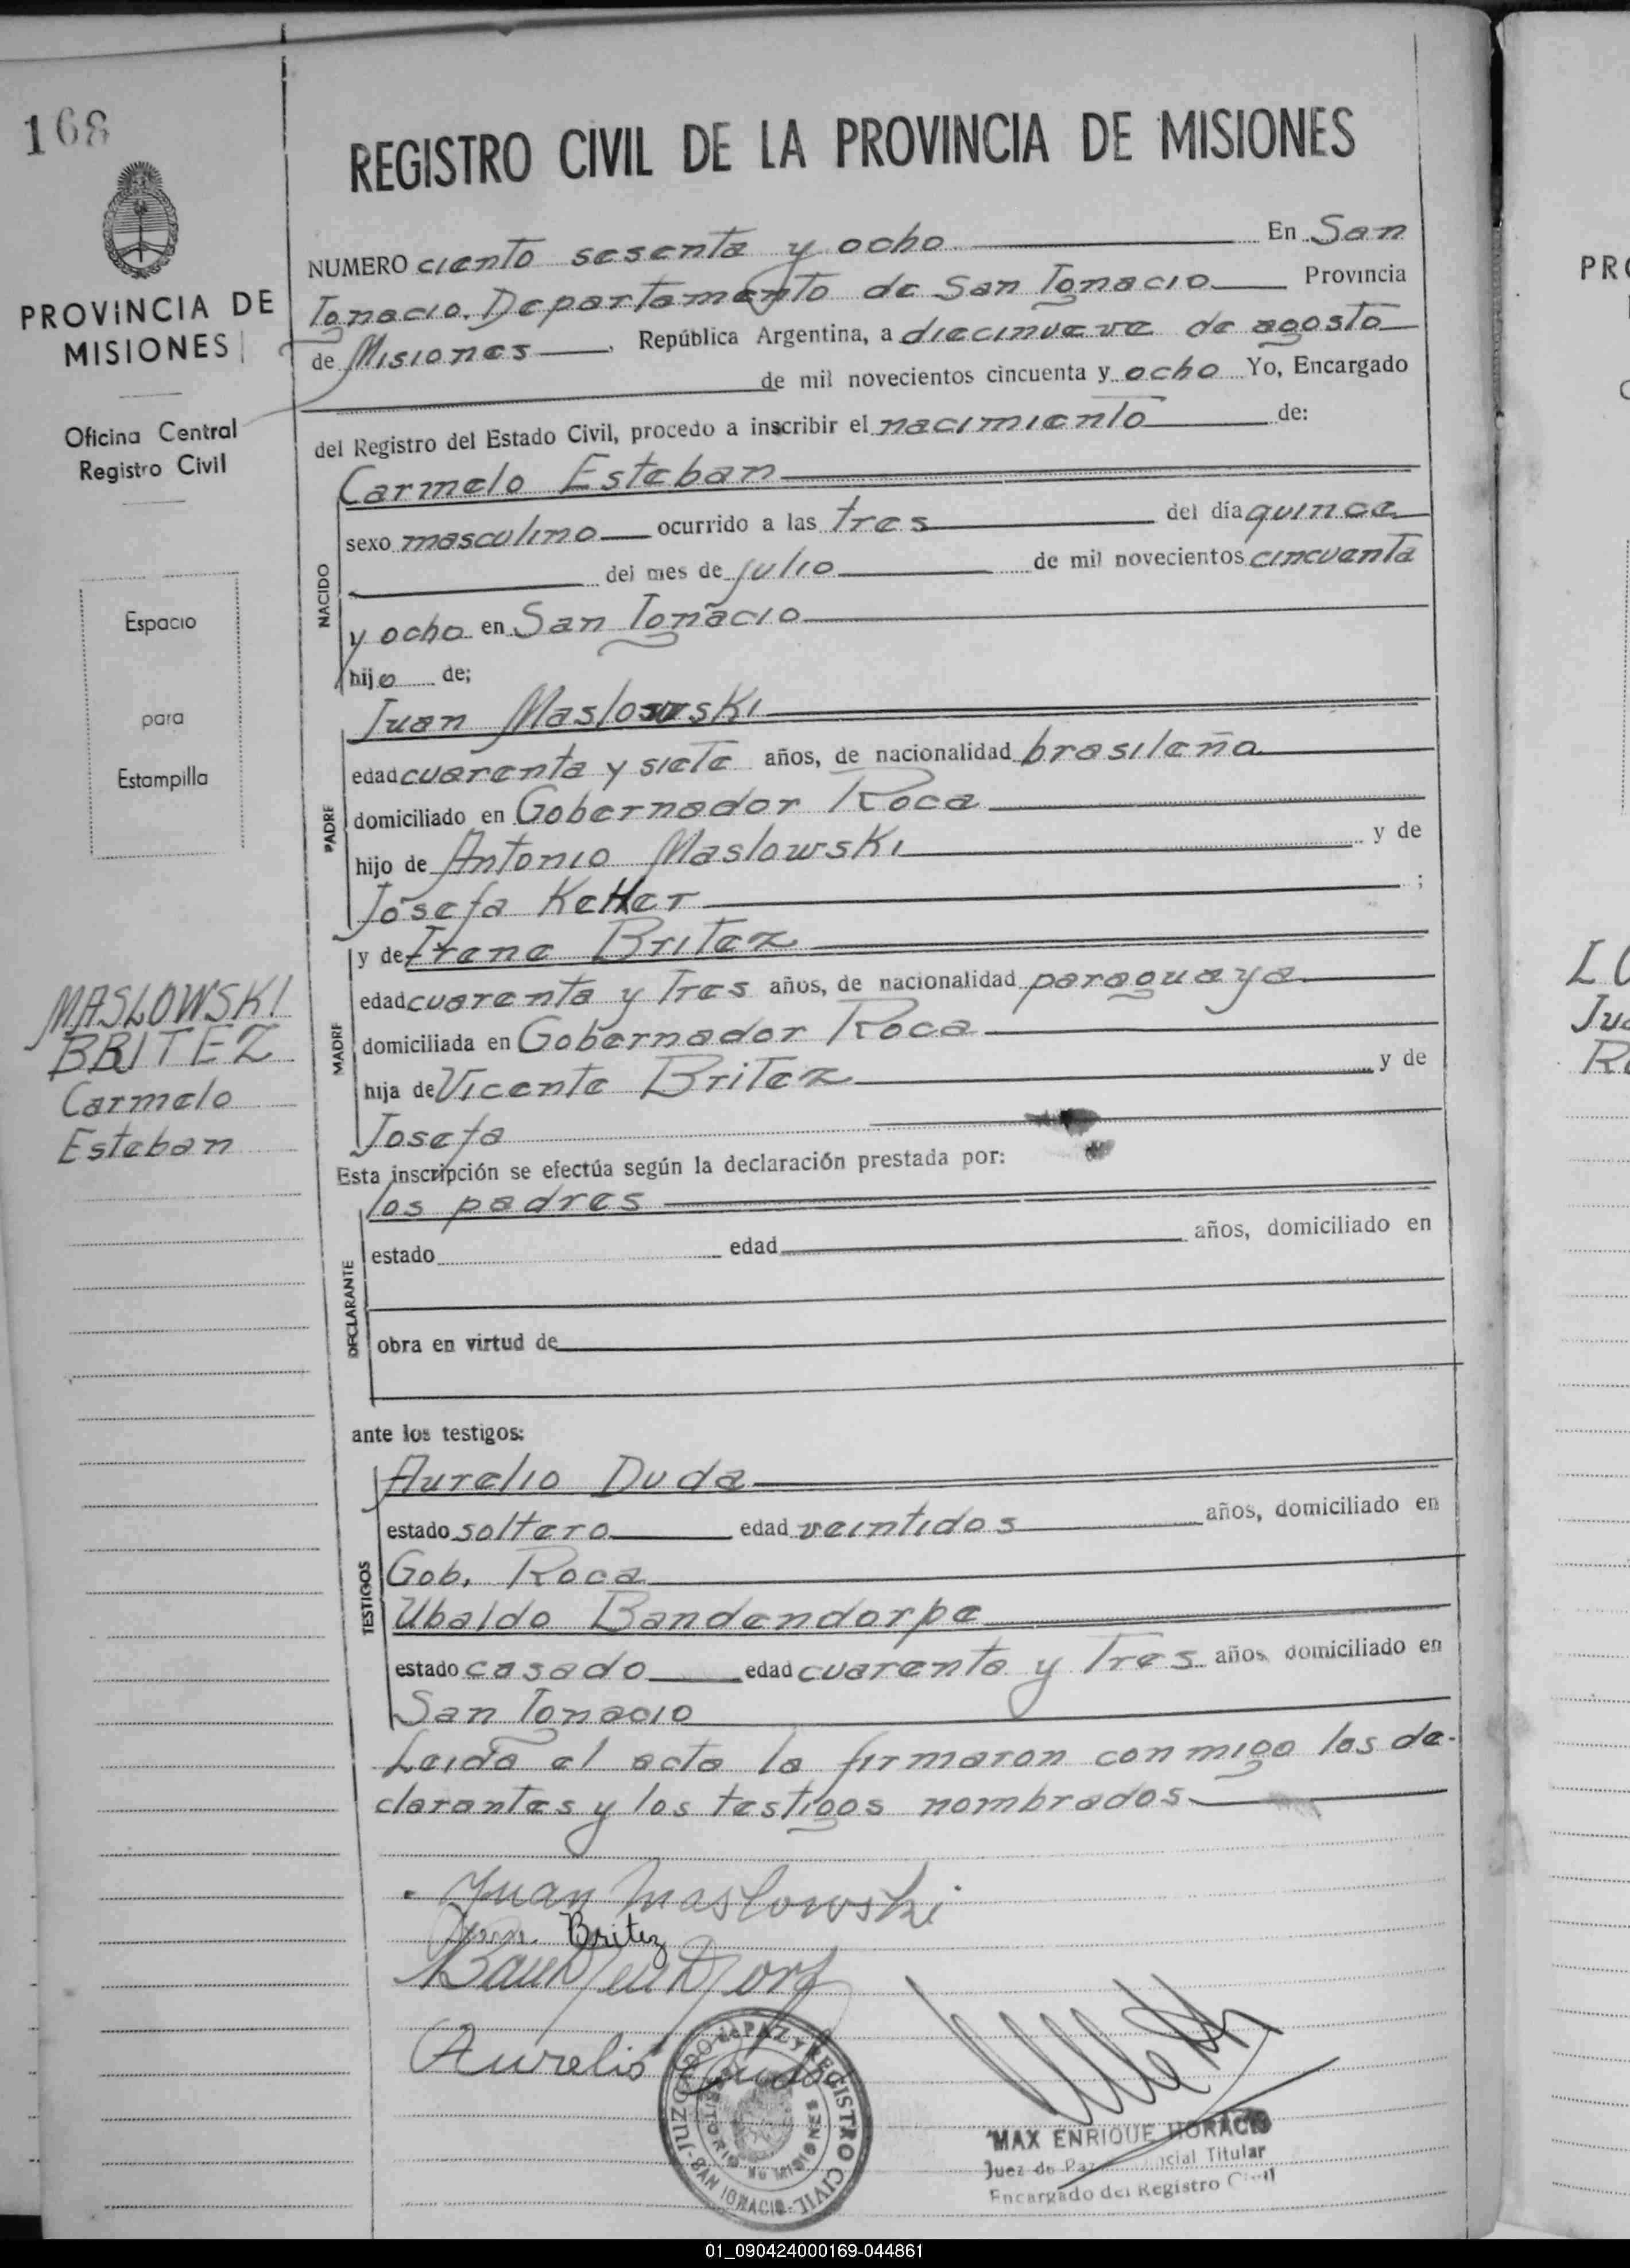 168
PROVINCIA DE
MISIONES
Oficina Central
Registro Civil
Espacio
para
Estampilla
MASLOWSKI
BRITEZ
Carmelo
Esteban
REGISTRO CIVIL DE LA PROVINCIA DE MISIONES
NUMERO ciento sesenta y ocho En San
Ignacio. Departamento de San Ignacio Provincia
de Misiones, República Argentina, a diecinueve de agosto
de mil novecientos cincuenta y ocho Yo, Encargado
del Registro del Estado Civil, procedo a inscribir el nacimiento de:
NACIDO
Carmelo Esteban
sexo masculino ocurrido a las tres del día quince
del mes de julio de mil novecientos cincuenta
y ocho en San Ignacio
hijo de;
PADRE
Juan Maslowski
edad cuarenta y siete años, de nacionalidad brasileña
domiciliado en Gobernador Roca
hijo de Antonio Maslowski y de
Josefa Keller ;
MADRE
y de Irene Britez
edad cuarenta y tres años, de nacionalidad paraguaya
domiciliada en Gobernador Roca
hija de Vicente Britez y de
Josefa
Esta inscripción se efectúa según la declaración prestada por:
DECLARANTE
los padres
estado edad años, domiciliado en
obra en virtud de
ante los testigos:
TESTIGOS
Aurelio Duda
estado soltero edad veintidos años, domiciliado en
Gob. Roca
Ubaldo Bandendorpe
estado casado edad cuarenta y tres años, domiciliado en
San Ignacio
Leída el acta la firmaron conmigo los de-
clarantes y los testigos nombrados
Juan Maslowski
Britez
Aurelio Duda
JUZGADO de PAZ y REGISTRO CIVIL - SAN IGNACIO -
TERRITORIO de MISIONES
MAX ENRIQUE HORACIO
Juez de Paz Titular
Encargado del Registro Civil
PRO
LO
Ju
R
01_090424000169-044861